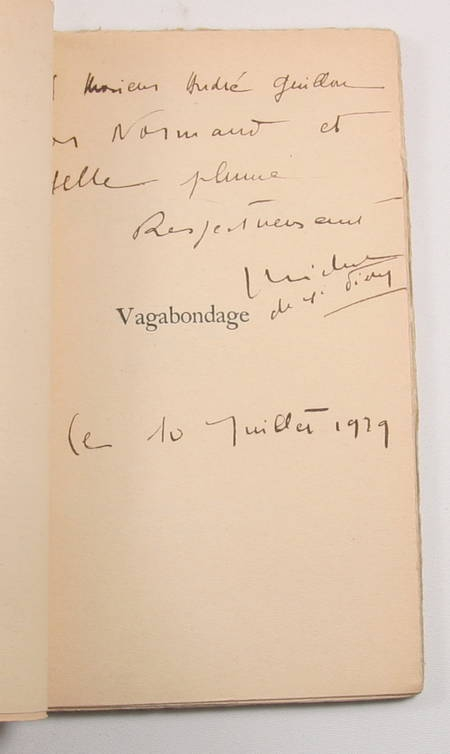 Monsieur André Guillou
Normand et
belle plume
Respectueusement
Michel
de St Pierre
Vagabondage
Le 10 Juillet 1939